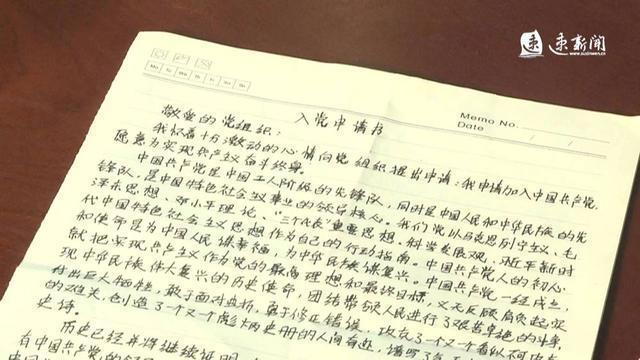 速新闻
www.suxinwen.cn
Memo No.
Date / /
Mo Tu We Th Fr Sa Su
入党申请书
敬爱的党组织：
我怀着十分激动的心情向党组织提出申请：我申请加入中国共产党，
愿意为实现共产主义奋斗终身。
中国共产党是中国工人阶级的先锋队，同时是中国人民和中华民族的先
锋队，是中国特色社会主义事业的领导核心。我们党以马克思列宁主义、毛
泽东思想、邓小平理论、“三个代表”重要思想、科学发展观、习近平新时
代中国特色社会主义思想作为自己的行动指南。中国共产党人的初心
和使命是为中国人民谋幸福，为中华民族谋复兴。中国共产党一经成立，
就把实现共产主义作为党的最高理想和最终目标，义无反顾肩负起实
现中华民族伟大复兴的历史使命，团结带领人民进行了艰苦卓绝的斗争，
付出巨大牺牲，敢于面对曲折，勇于修正错误，攻克了一个又一个看似不可攻克
的难关，创造了一个又一个彪炳史册的人间奇迹，谱写了
史诗。
历史已经并将继续证明
有中国共产党的领导